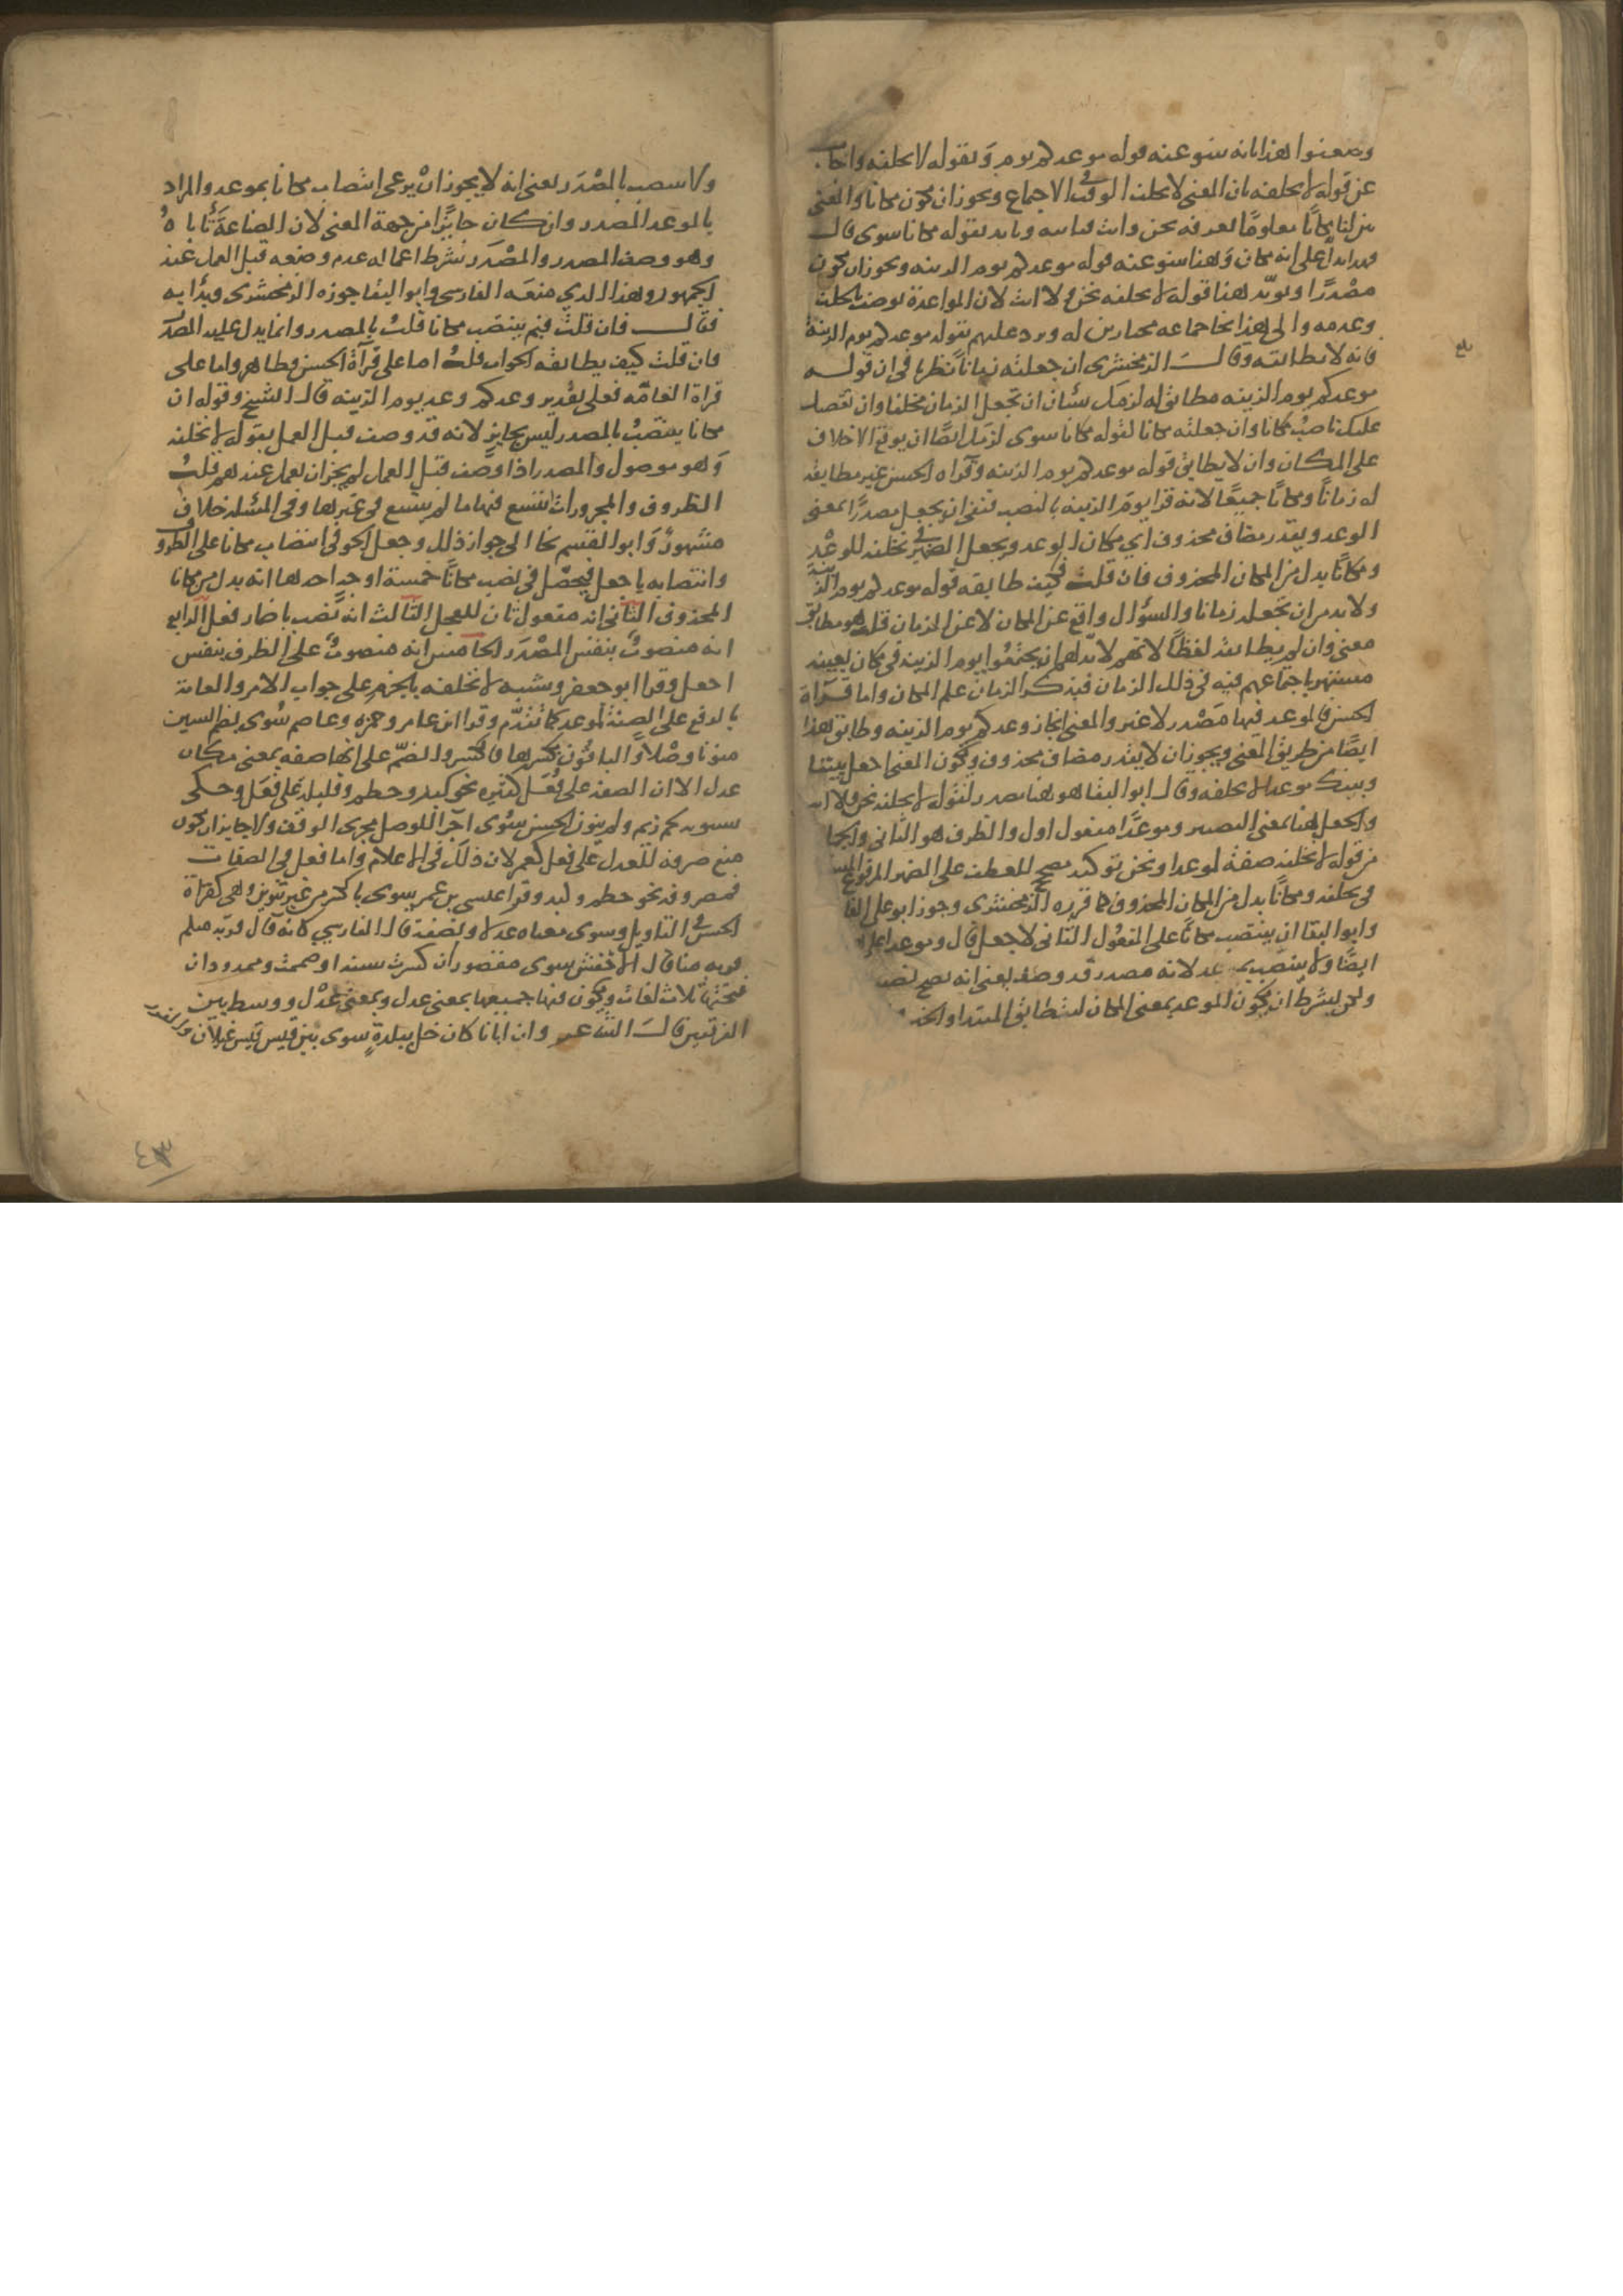 وضعفوا هذا بانه ينبو عنه قوله موعدكم يوم وبقوله لا نخلفه واجاب
عن قوله لا نخلفه بان المعنى لا نخلف الوقت في الاجتماع ويجوز ان يكون مكانا والمعنى
بين لنا مكانا معلوما نعرفه نحن وانت فناتيه ويايد بقوله مكانا سوى قال
فهذا يدل على انه مكان وهنا ينبو عنه قوله موعدكم يوم الزينه ويجوز ان يكون
مصدرًا ويويد هنا قوله لا نخلفه نحن ولا انت لان المواعدة توصف بالخلف
وعدمه والى هذا نحا جماعه مختارين له ورد عليهم بقوله موعدكم يوم الزينة
فانه لا يطابقه وقال الزمخشرى ان جعلته زمانًا نظرا في ان قوله
موعدكم يوم الزينه مطابق له لزمك شيان ان تجعل الزمان مخلفا وان يعضل
عليك ناصب مكانا وان جعلته مكانا لقوله مكانا سوى لزمك ايضًا ان يوقع الاخلاف
على المكان وان لا يطابق قوله موعدكم يوم الزينه وقراه الحسن غير مطابقه
له زمانًا ومكانًا جميعًا لانه قرا يوم الزينه بالنصب فبقى ان يجعل مصدرًا بمعنى
الوعد ويقدر مضاف محذوف اي مكان الوعد ويجعل الضمير في نخلفه للوعد
ومكانًا بدل من المكان المحذوف فان قلت فكيف طابقه قوله موعدكم يوم الزينة
ولا بد من ان تجعله زمانا والسؤال واقع عن المكان لا عن الزمان قلت هو مطابق
معنى وان لم يطابقه لفظًا لانهم لا بد لهم ان يجتمعوا يوم الزينه في مكان بعينه
مشتهر باجتماعهم فيه في ذلك الزمان فبذكر الزمان علم المكان واما قراة
الحسن فالموعد فيها مصدر لا غير والمعنى انجاز وعدكم يوم الزينه وطابق هذا
ايضًا من طريق المعنى ويجوز ان لا يقدر مضاف محذوف ويكون المعنى اجعل بيننا
وبينك موعدا لا نخلفه وقال ابو البقا هو هنا مصدر لقوله لا نخلفه نحن ولا انت
والجعل هنا بمعنى التصيير وموعدًا مفعول اول والظرف هو الثاني والجملة
من قوله لا نخلفه صفة لموعدا ونحن توكيد مصحح للعطف على الضمير المرفوع المستتر
في نخلفه ومكانًا بدل من المكان المحذوف كما قرره الزمخشرى وجوز ابو على الفا
وابو البقا ان ينتصب مكانًا على المفعول الثاني لاجعل قال وموعدا على
ايضًا ولا ينتصب بموعد لانه مصدر قد وصف يعنى انه يصح نصبه
ولكن بشرط ان يكون الموعد بمعنى المكان ليتطابق المبتدا والخبر
بلغ
ولا ينتصب بالمصدر يعنى انه لا يجوز ان يدعى انتصاب مكانا بموعد والمراد
بالموعد المصدر وان كان جايزًا من جهة المعنى لان الصناعة تاباه
وهو وصف المصدر والمصدر شرط اعماله عدم وصفه قبل العمل عند
الجمهور وهذا الذي منعه الفارسى وابو البقا جوزه الزمخشرى وبدا به
فقال فان قلت فبم ينتصب مكانا قلت بالمصدر او بما يدل عليه المصدر
فان قلت كيف يطابقه الجواب قلت اما على قرآة الحسن فظاهر واما على
قراة العامه فعلى تقدير وعدكم وعد يوم الزينه قال الشيخ وقوله ان
مكانا ينتصب بالمصدر ليس بجايز لانه قد وصف قبل العمل بقوله لا نخلفه
وهو موصول والمصدر اذا وصف قبل العمل لم يجز ان يعمل عندهم قلت
الظروف والمجرورات يتسع فيها ما لم يتسع في غيرها وفي المسئلة خلاف
مشهور وابو القسم نحا الى جواز ذلك وجعل الحوفى انتصاب مكانا على الظرف
وانتصابه باجعل فيحصل في نصب مكانًا خمسة اوجه احدها انه بدل من مكانا
المحذوف الثاني انه مفعول ثان للجعل الثالث انه نصب باضمار فعل الرابع
انه منصوب بنفس المصدر الخامس انه منصوب على الظرف بنفس
اجعل وقرا ابو جعفر وشيبه لا نخلفه بالجزم على جواب الامر والعامة
بالرفع على الصفة لموعد كما تقدم وقرا ابن عامر وحمزه وعاصم سوى بضم السين
منونا وصلا والباقون بكسرها فالكسر والضم على انها صفه بمعنى مكان
عدل الا ان الصفه على فُعَل كثيره نحو لبد وحطم وقليلة على فِعَل وحكى
سيبويه لحم زيم ولم ينون الحسن سوى اجرا للوصل مجرى الوقف ولا جايز ان يكون
منع صرفه للعدل على فعل كعمر لان ذلك في الاعلام واما فعل في الصفات
فمصروفه نحو حطم ولبد وقرا عيسى بن عمر سوى بالكسر من غير تنوين وهى كقراة
الحسن في التاويل وسوى معناه عدلا ونصفة قال الفارسي كانه قال قربه منكم
قربه منا قال الاخفش سوى مقصور ان كسرت سينه او ضممت وممدود ان
فتحتها ثلاث لغات ويكون فيها جميعها بمعنى عدل وبمعنى عدل ووسط بين
الفريقين قال الشاعر وان ابانا كان حل ببلدةٍ سوى بين قيس قيس غيلان والفزر
٤٣